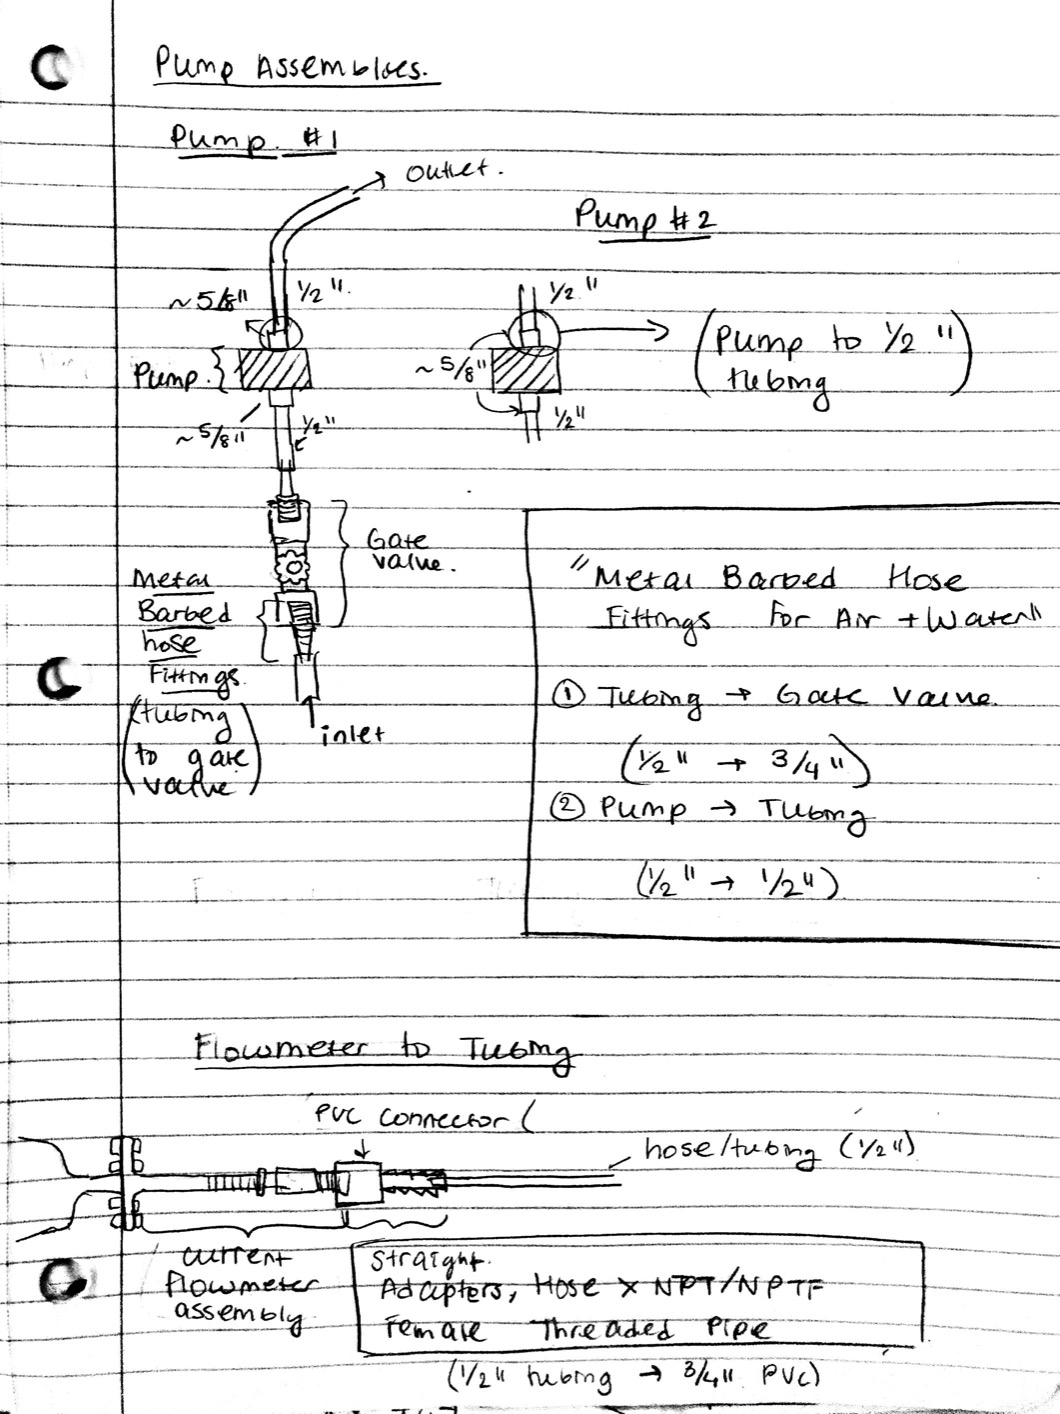 Pump Assemblies.
Pump #1
outlet.
~5/8"
1/2".
Pump
~5/8"
1/2"
Gate
valve.
Metal
Barbed
hose
Fittings.
(tubing
to gate
valve)
inlet
Pump #2
1/2"
~5/8"
1/2"
(Pump to 1/2"
tubing)
"Metal Barbed Hose
Fittings For Air + Water"
① Tubing → Gate Valve.
(1/2" → 3/4")
② Pump → Tubing
(1/2" → 1/2")
Flowmeter to Tubing
PVC connector (
hose/tubing (1/2")
current
flowmeter
assembly
Straight.
Adapters, Hose x NPT/NPTF
Female Threaded Pipe
(1/2" tubing → 3/4" PVC)